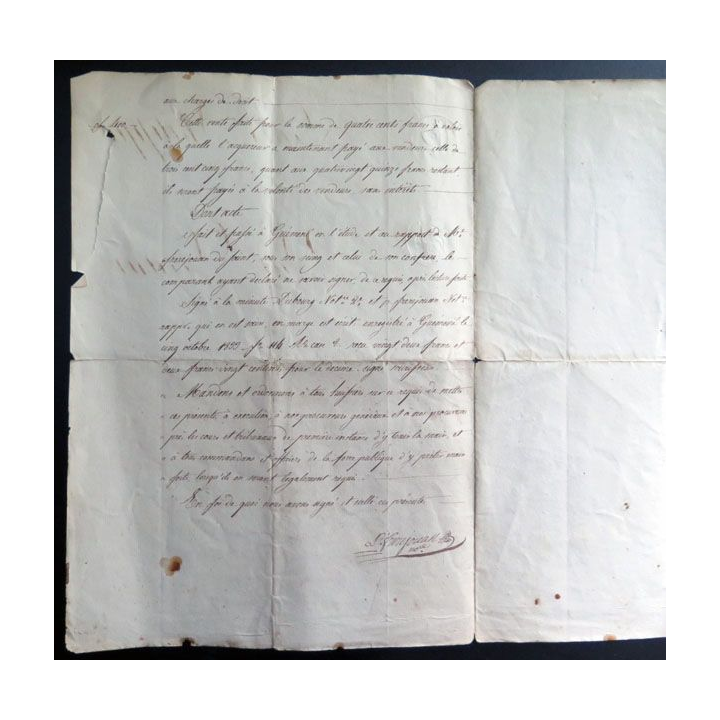 aux charges de droit
Cette vente faite pour la somme de quatre cents francs à valoir
à la quelle l'acquereur a maintenant payé aux vendeurs celle de
trois cent cinq francs, quant aux quatrevingt quinze francs restant
ils seront payés à la volonté des vendeurs, sans intérêts
Dont acte
fait et passé à Guémené en l'étude et au rapport de Me
du , sous son seing et celui de son confrère, le
comparant ayant déclaré ne savoir signer de ce requis, après lecture faite
Signé à la minute Notre et Notre
rapp. qui en est saisi, en marge est écrit enregistré à Guémené le
cinq octobre 1822, fo 114 reçu vingt deux francs et
deux francs vingt centimes pour le décime, signé
Mandons et ordonnons à tous huissiers sur ce requis de mettre
ces présentes à exécution, à nos procureurs généraux et à nos procureurs
près les cours et tribunaux de première instance d'y tenir la main, et
à tous commandans et officiers de la force publique d'y prêter main
forte lorsqu'ils en seront légalement requis.
En foi de quoi nous avons signé et scellé ces présentes